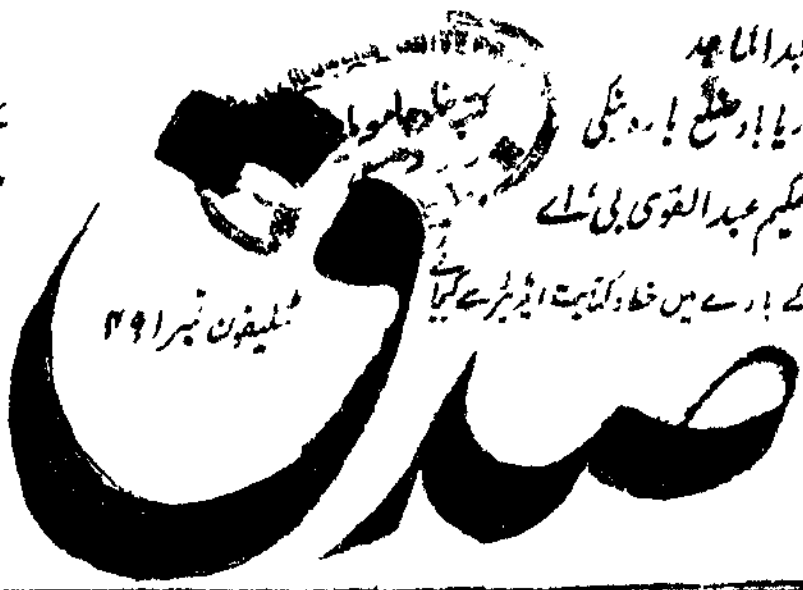 عبدالماجد
دریاباد ضلع بارہ بنکی
حکیم عبدالقوی بی، اے
کے بارے میں خط و کتابت ایڈیٹر سے کیجائے
ٹیلیفون نمبر ۴۹۱
صدق
کتب خانہ جامعہ